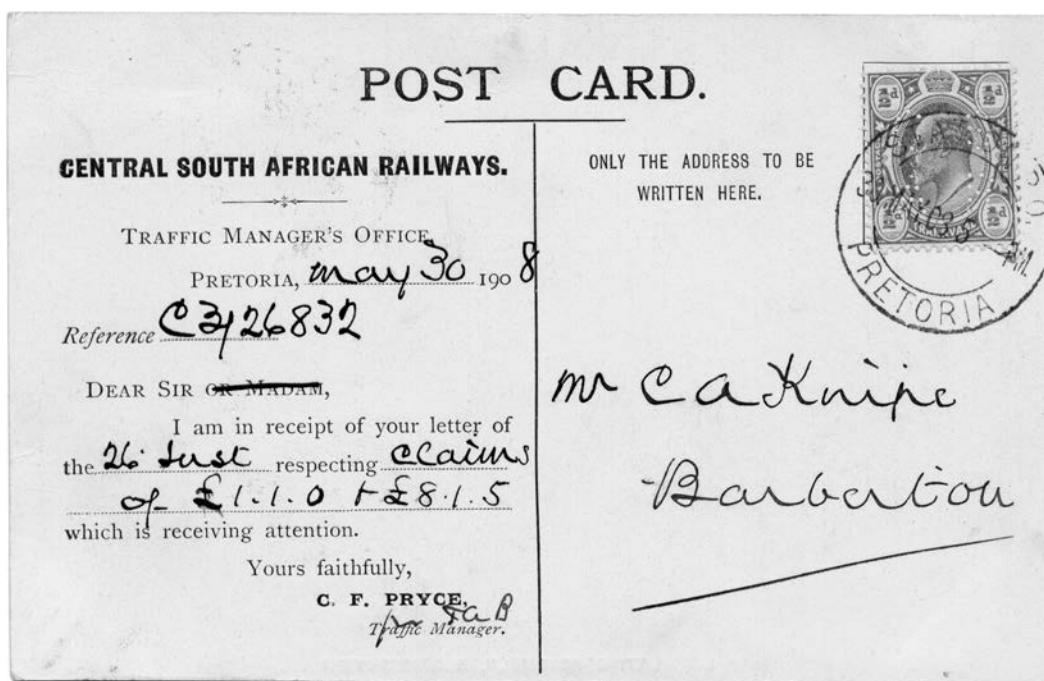 POST CARD.
CENTRAL SOUTH AFRICAN RAILWAYS.
TRAFFIC MANAGER'S OFFICE,
PRETORIA, May 30 1908
Reference C3/26832
DEAR SIR OR MADAM,
I am in receipt of your letter of
the 26 Inst respecting claims
of £1.1.0 + £8.1.5
which is receiving attention.
Yours faithfully,
C. F. PRYCE,
Traffic Manager.
ONLY THE ADDRESS TO BE
WRITTEN HERE.
½d ½d
½d ½d
TRANSVAAL
PRETORIA
Mr C A Knipe
Barberton